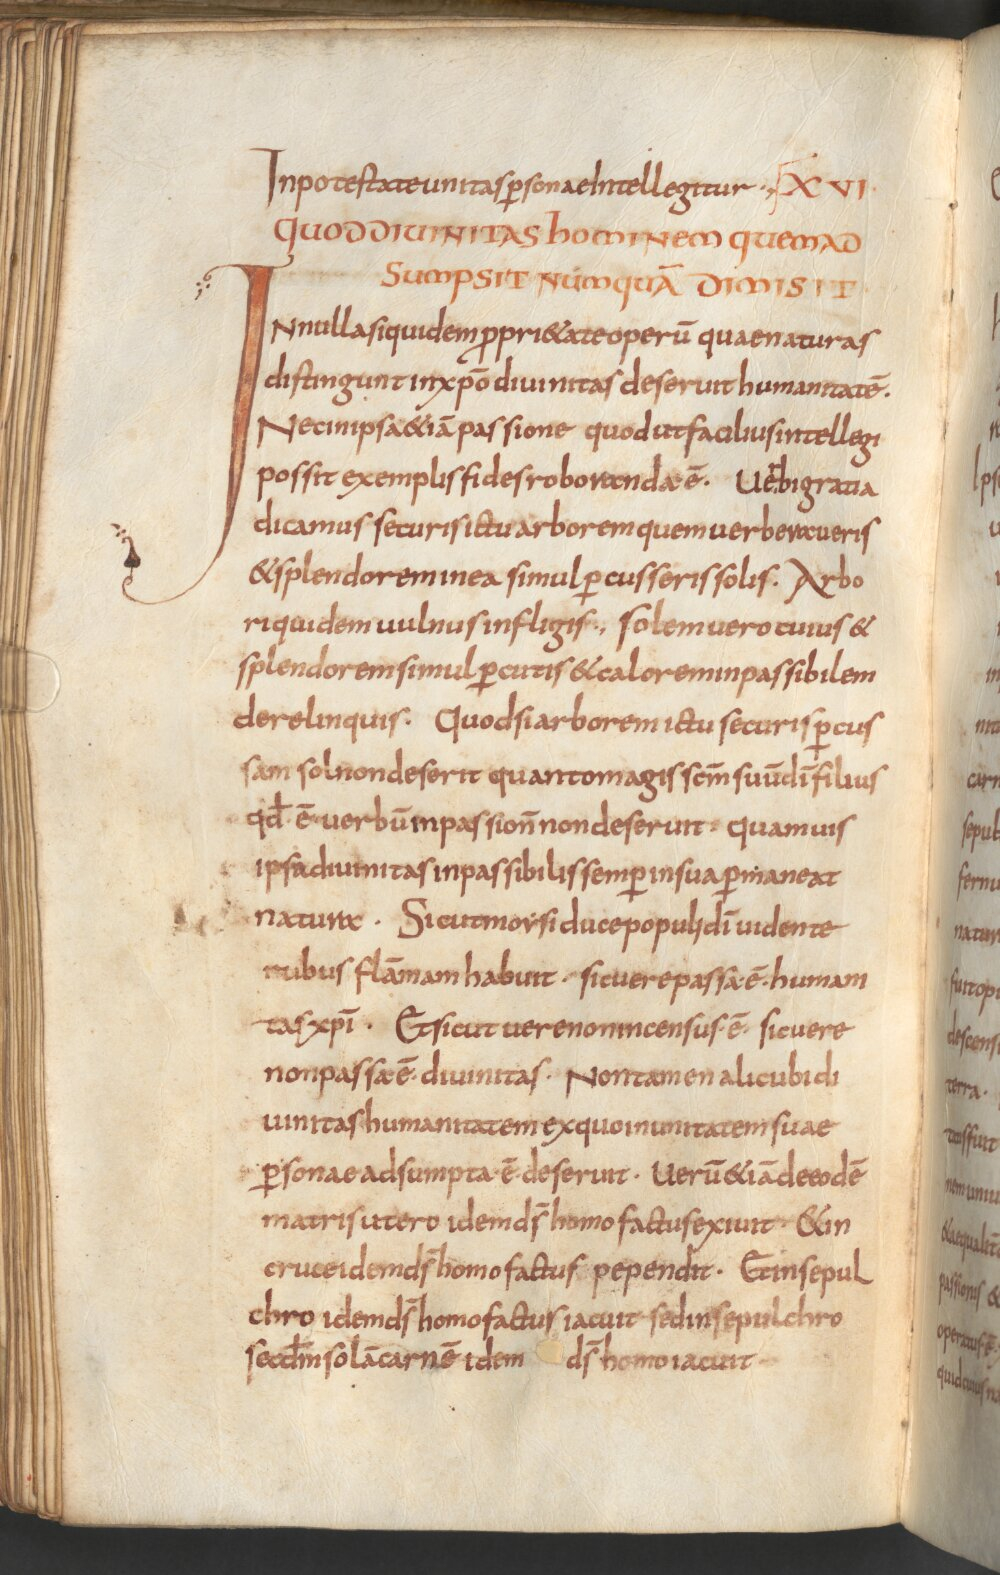 In potestate unitas p̲sonae intellegitur·, XVI·
QUOD DIUINITAS hOMINEM QUEM AD
SUMPSIT NUMQUĀ DIMISIT
IN nulla siquidem ꝓpri&ate operū quae naturas
distingunt in xp̄o diuinitas deseruit humanitatē·
Nec in ipsa &iā passione quod ut facilius intellegi
possit exemplis fides roboranda ē· Uerbi gratia
dicamus securis ictu arborem quem uerberaueris
& splendorem in ea simul p̲cusseris solis· Arbo
ri quidem uulnus infligis·, solem uero cuius &
splendorem simul p̲cutis & calorem inpassibilem
derelinquis· Quod si arborem ictu securis p̲cus
sam sol non deserit quanto magis scm̄ suū dī filius
qd̄ ē uerbū in passion̄ non deseruit· quamuis
ipsa diuinitas inpassibilis semp̲ in sua p̲maneat
natura· Sicut moysi duce populi dī uidente
rubus flāmam habuit· sic uere passa ē· humani
tas xp̄i· Et sicut uere non incensus ē· sic uere
non passa ē· diuinitas· Non tamen alicubi di
uinitas humanitatem ex quo in unitatem suae
p̲sonae adsumpta ē deseruit· Uerū &iā de eodē
matris utero idem ds̄ homo factus exiuit· & in
cruce idem ds̄ homo factus pependit· Et in sepul
chro idem ds̄ homo factus iacuit sed in sepulchro
secd̄m solā carnē idem ds̄ homo iacuit